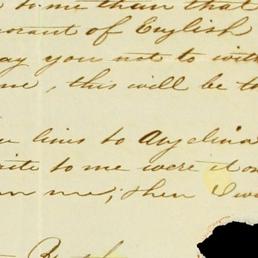 to me than that
norant of English
ay you not to with
me, this will be to
lines to Angelina
rite to me were it on
on me; then I wo